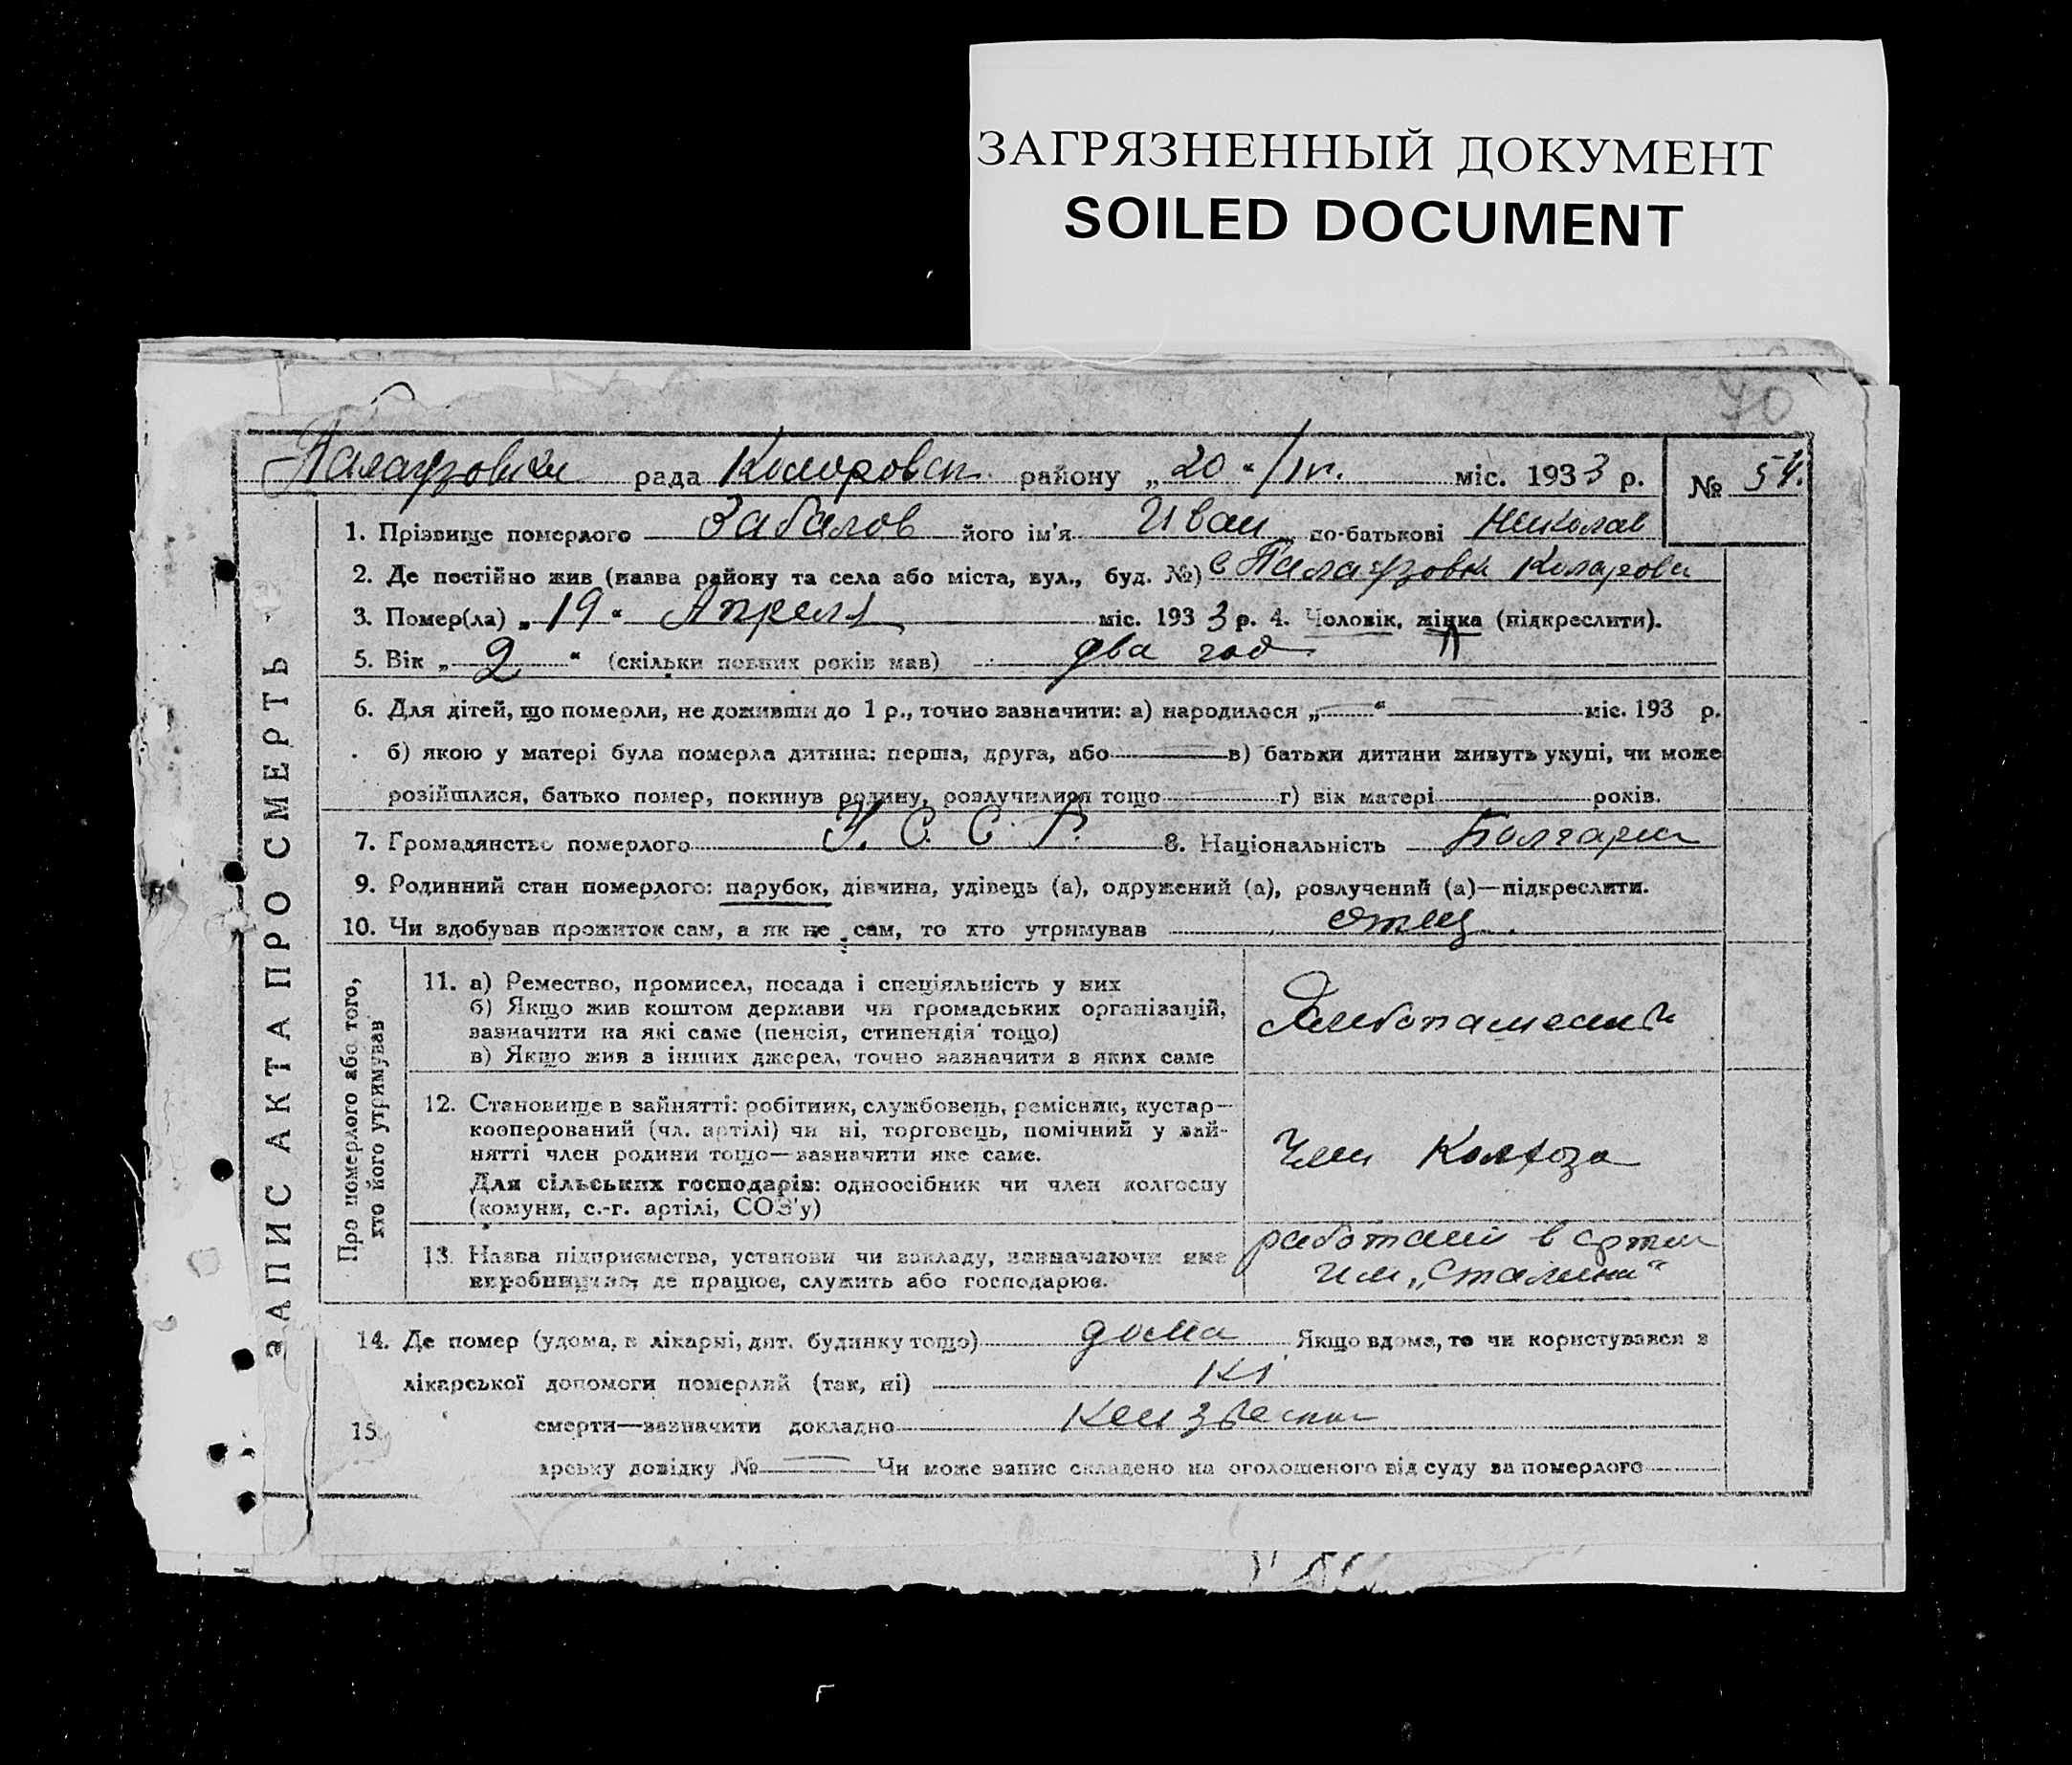 ЗАГРЯЗНЕННЫЙ ДОКУМЕНТ
SOILED DOCUMENT
70
рада Коларовск. району „20“ /IV. міс. 1933 р. № 54.
ЗАПИС АКТА ПРО СМЕРТЬ
1. Прізвище померлого Забалов його ім'я Иван по-батькові Николав
2. Де постійно жив (назва району та села або міста, вул., буд. №) с Палаузовка Коларовск
3. Помер(ла) „19“ Апреля міс. 1933 р. 4. Чоловік, жінка (підкреслити).
5. Вік „2“ (скільки повних років мав) два год
6. Для дітей, що померли, не доживши до 1 р., точно зазначити: а) народилося „—“ — міс. 193 р.
б) якою у матері була померла дитина: перша, друга, або — в) батьки дитини живуть укупі, чи може
розійшлися, батько помер, покинув родину, розлучилися тощо — г) вік матері — років.
7. Громадянство померлого У. С. С. Р. 8. Національність
9. Родинний стан померлого: парубок, дівчина, удівець (а), одружений (а), розлучений (а)—підкреслити.
10. Чи здобував прожиток сам, а як не сам, то хто утримував отец
Про померлого або того,
хто його утримував
11. а) Ремество, промисел, посада і спеціяльність у них
б) Якщо жив коштом держави чи громадських організацій,
зазначити на які саме (пенсія, стипендія тощо)
в) Якщо жив з інших джерел, точно зазначити з яких саме
12. Становище в зайнятті: робітник, службовець, ремісник, кустар—
кооперований (чл. артілі) чи ні, торговець, помічний у зай-
нятті член родини тощо—зазначити яке саме.
Для сільських господарів: одноосібник чи член колгоспу
(комуни, с.-г. артілі, СОЗ'у)
Член Колхоза
13. Назва підприємства, установи чи закладу, зазначаючи яке
виробництво, де працює, служить або господарює.
в артели
им „Сталина“
14. Де помер (удома, в лікарні, дит. будинку тощо) дома Якщо вдома, то чи користувався з
лікарської допомоги померлий (так, ні) Ні
15 смерти—зазначити докладно
арську довідку № — Чи може запис складено на оголошеного від суду за померлого